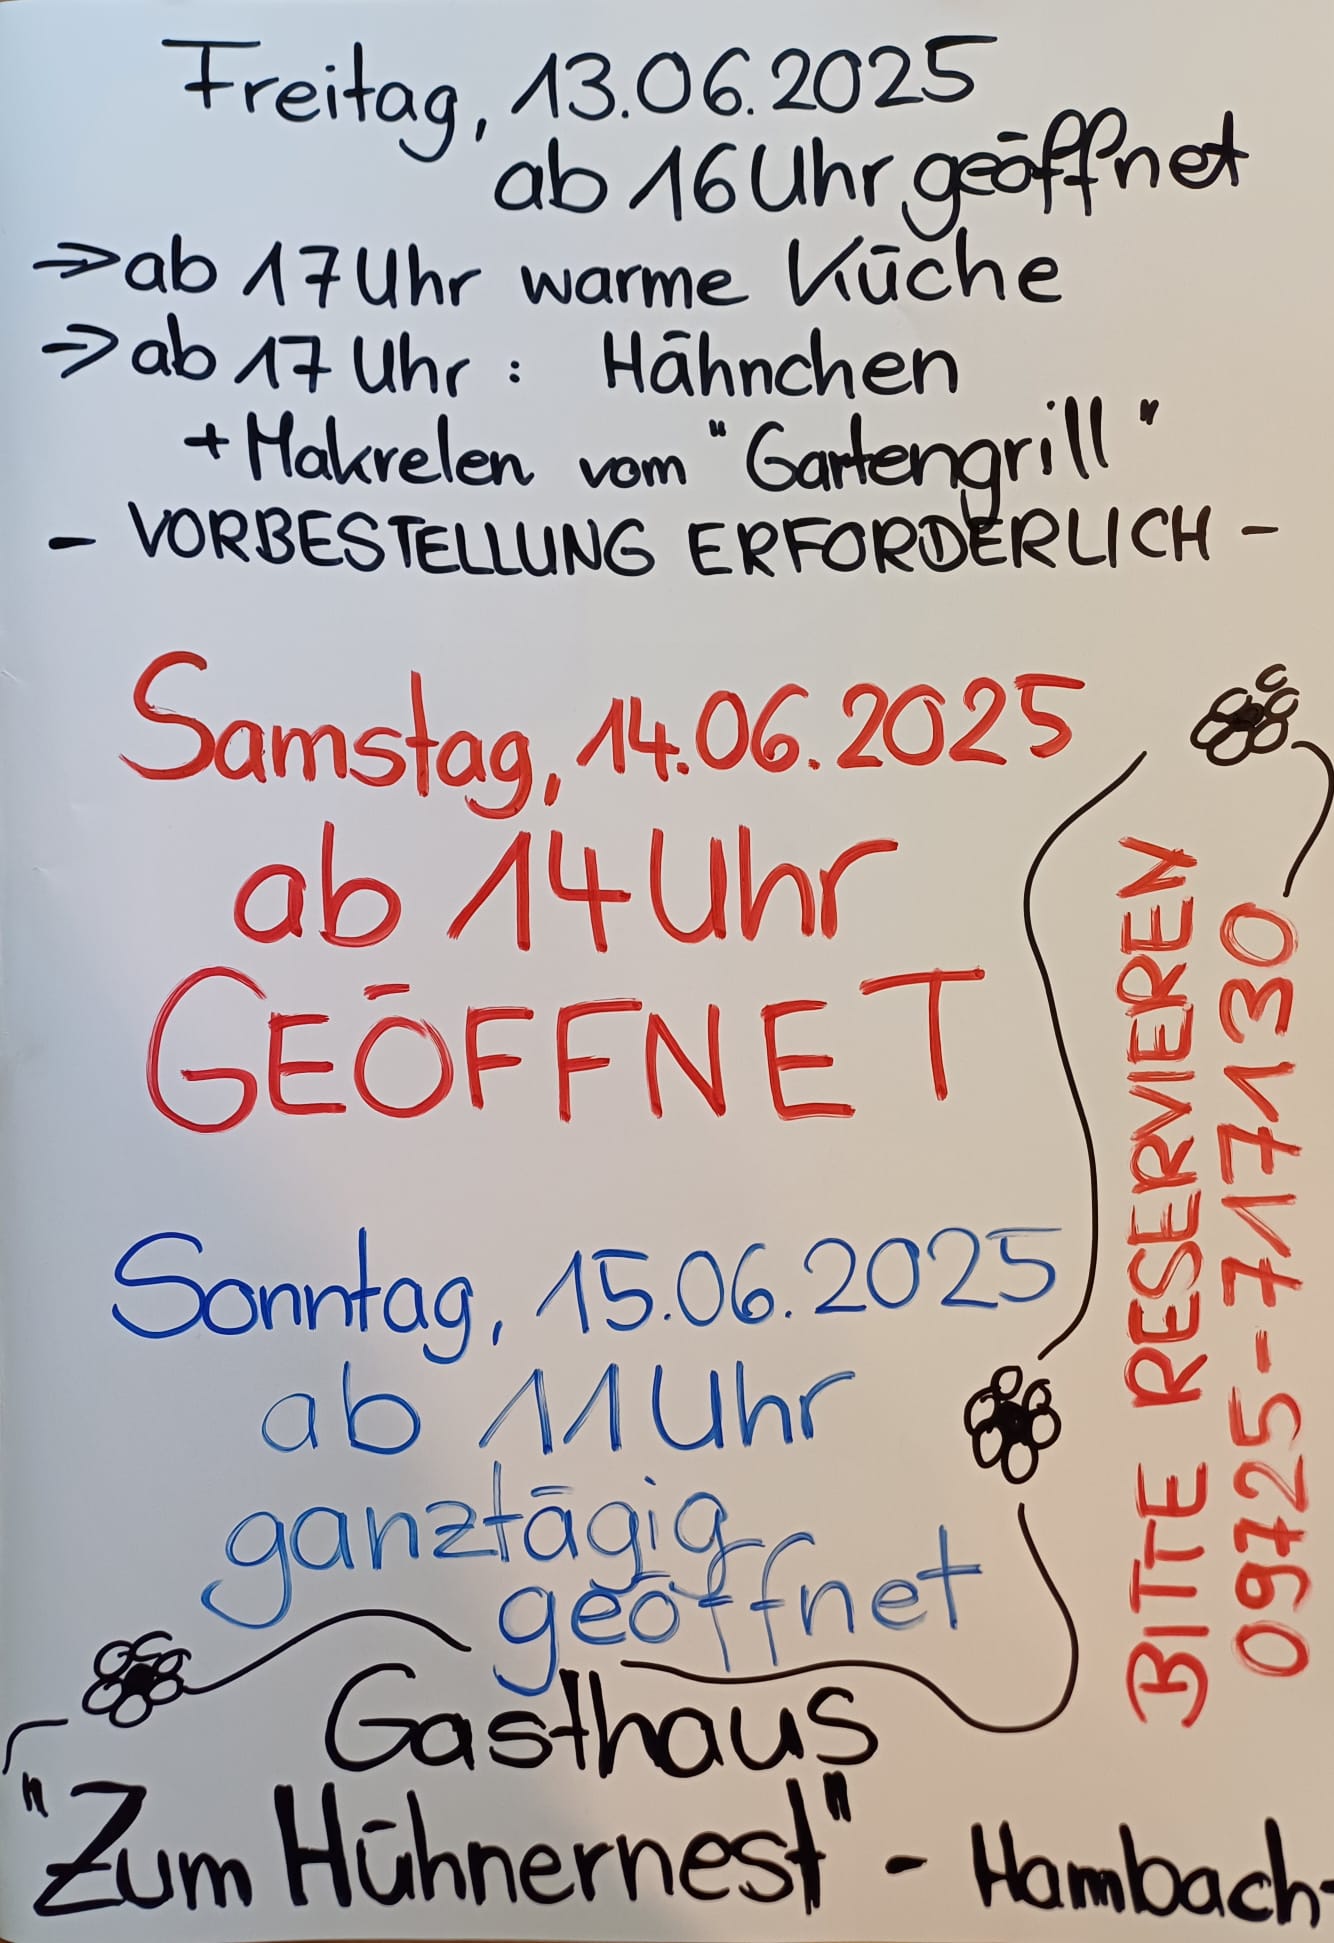 Freitag, 13.06.2025
ab 16 Uhr geöffnet
⇒ ab 17 Uhr warme Küche
⇒ ab 17 Uhr : Hähnchen
+ Makrelen vom "Gartengrill"
- VORBESTELLUNG ERFORDERLICH -
Samstag, 14.06.2025
ab 14 Uhr
GEÖFFNET
Sonntag, 15.06.2025
ab 11 Uhr
ganztägig
geöffnet
BITTE RESERVIEREN
09725-717130
Gasthaus
"Zum Hühnernest" - Hambach-